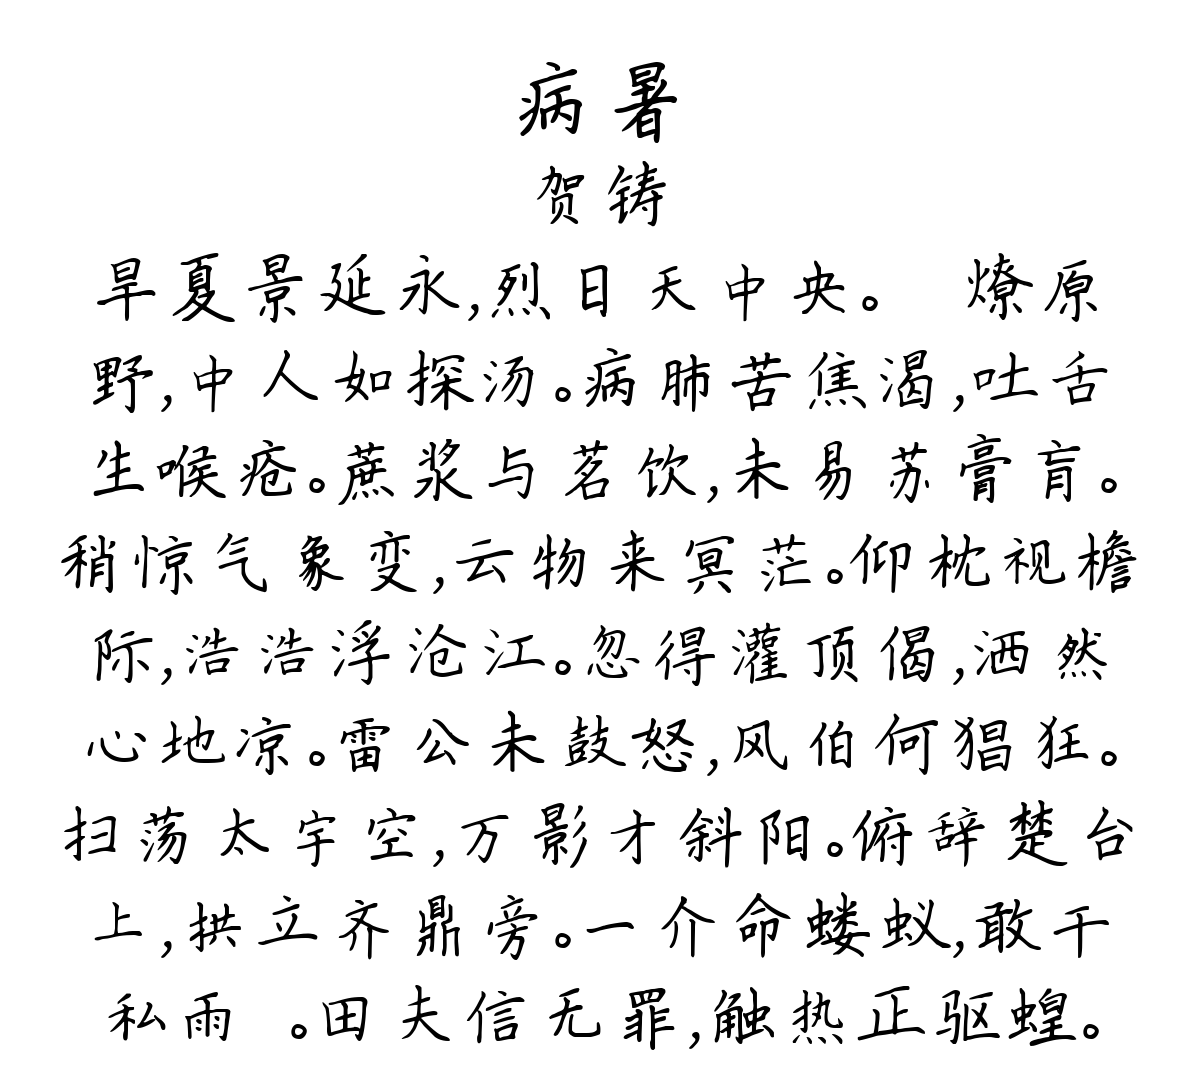 病暑
贺铸
旱夏景延永,烈日天中央。 燎原
野,中人如探汤。病肺苦焦渴,吐舌
生喉疮。蔗浆与茗饮,未易苏膏肓。
稍惊气象变,云物来冥茫。仰枕视檐
际,浩浩浮沧江。忽得灌顶偈,洒然
心地凉。雷公未鼓怒,风伯何猖狂。
扫荡太宇空,万影才斜阳。俯辞楚台
上,拱立齐鼎旁。一介命蝼蚁,敢干
私雨 。田夫信无罪,触热正驱蝗。